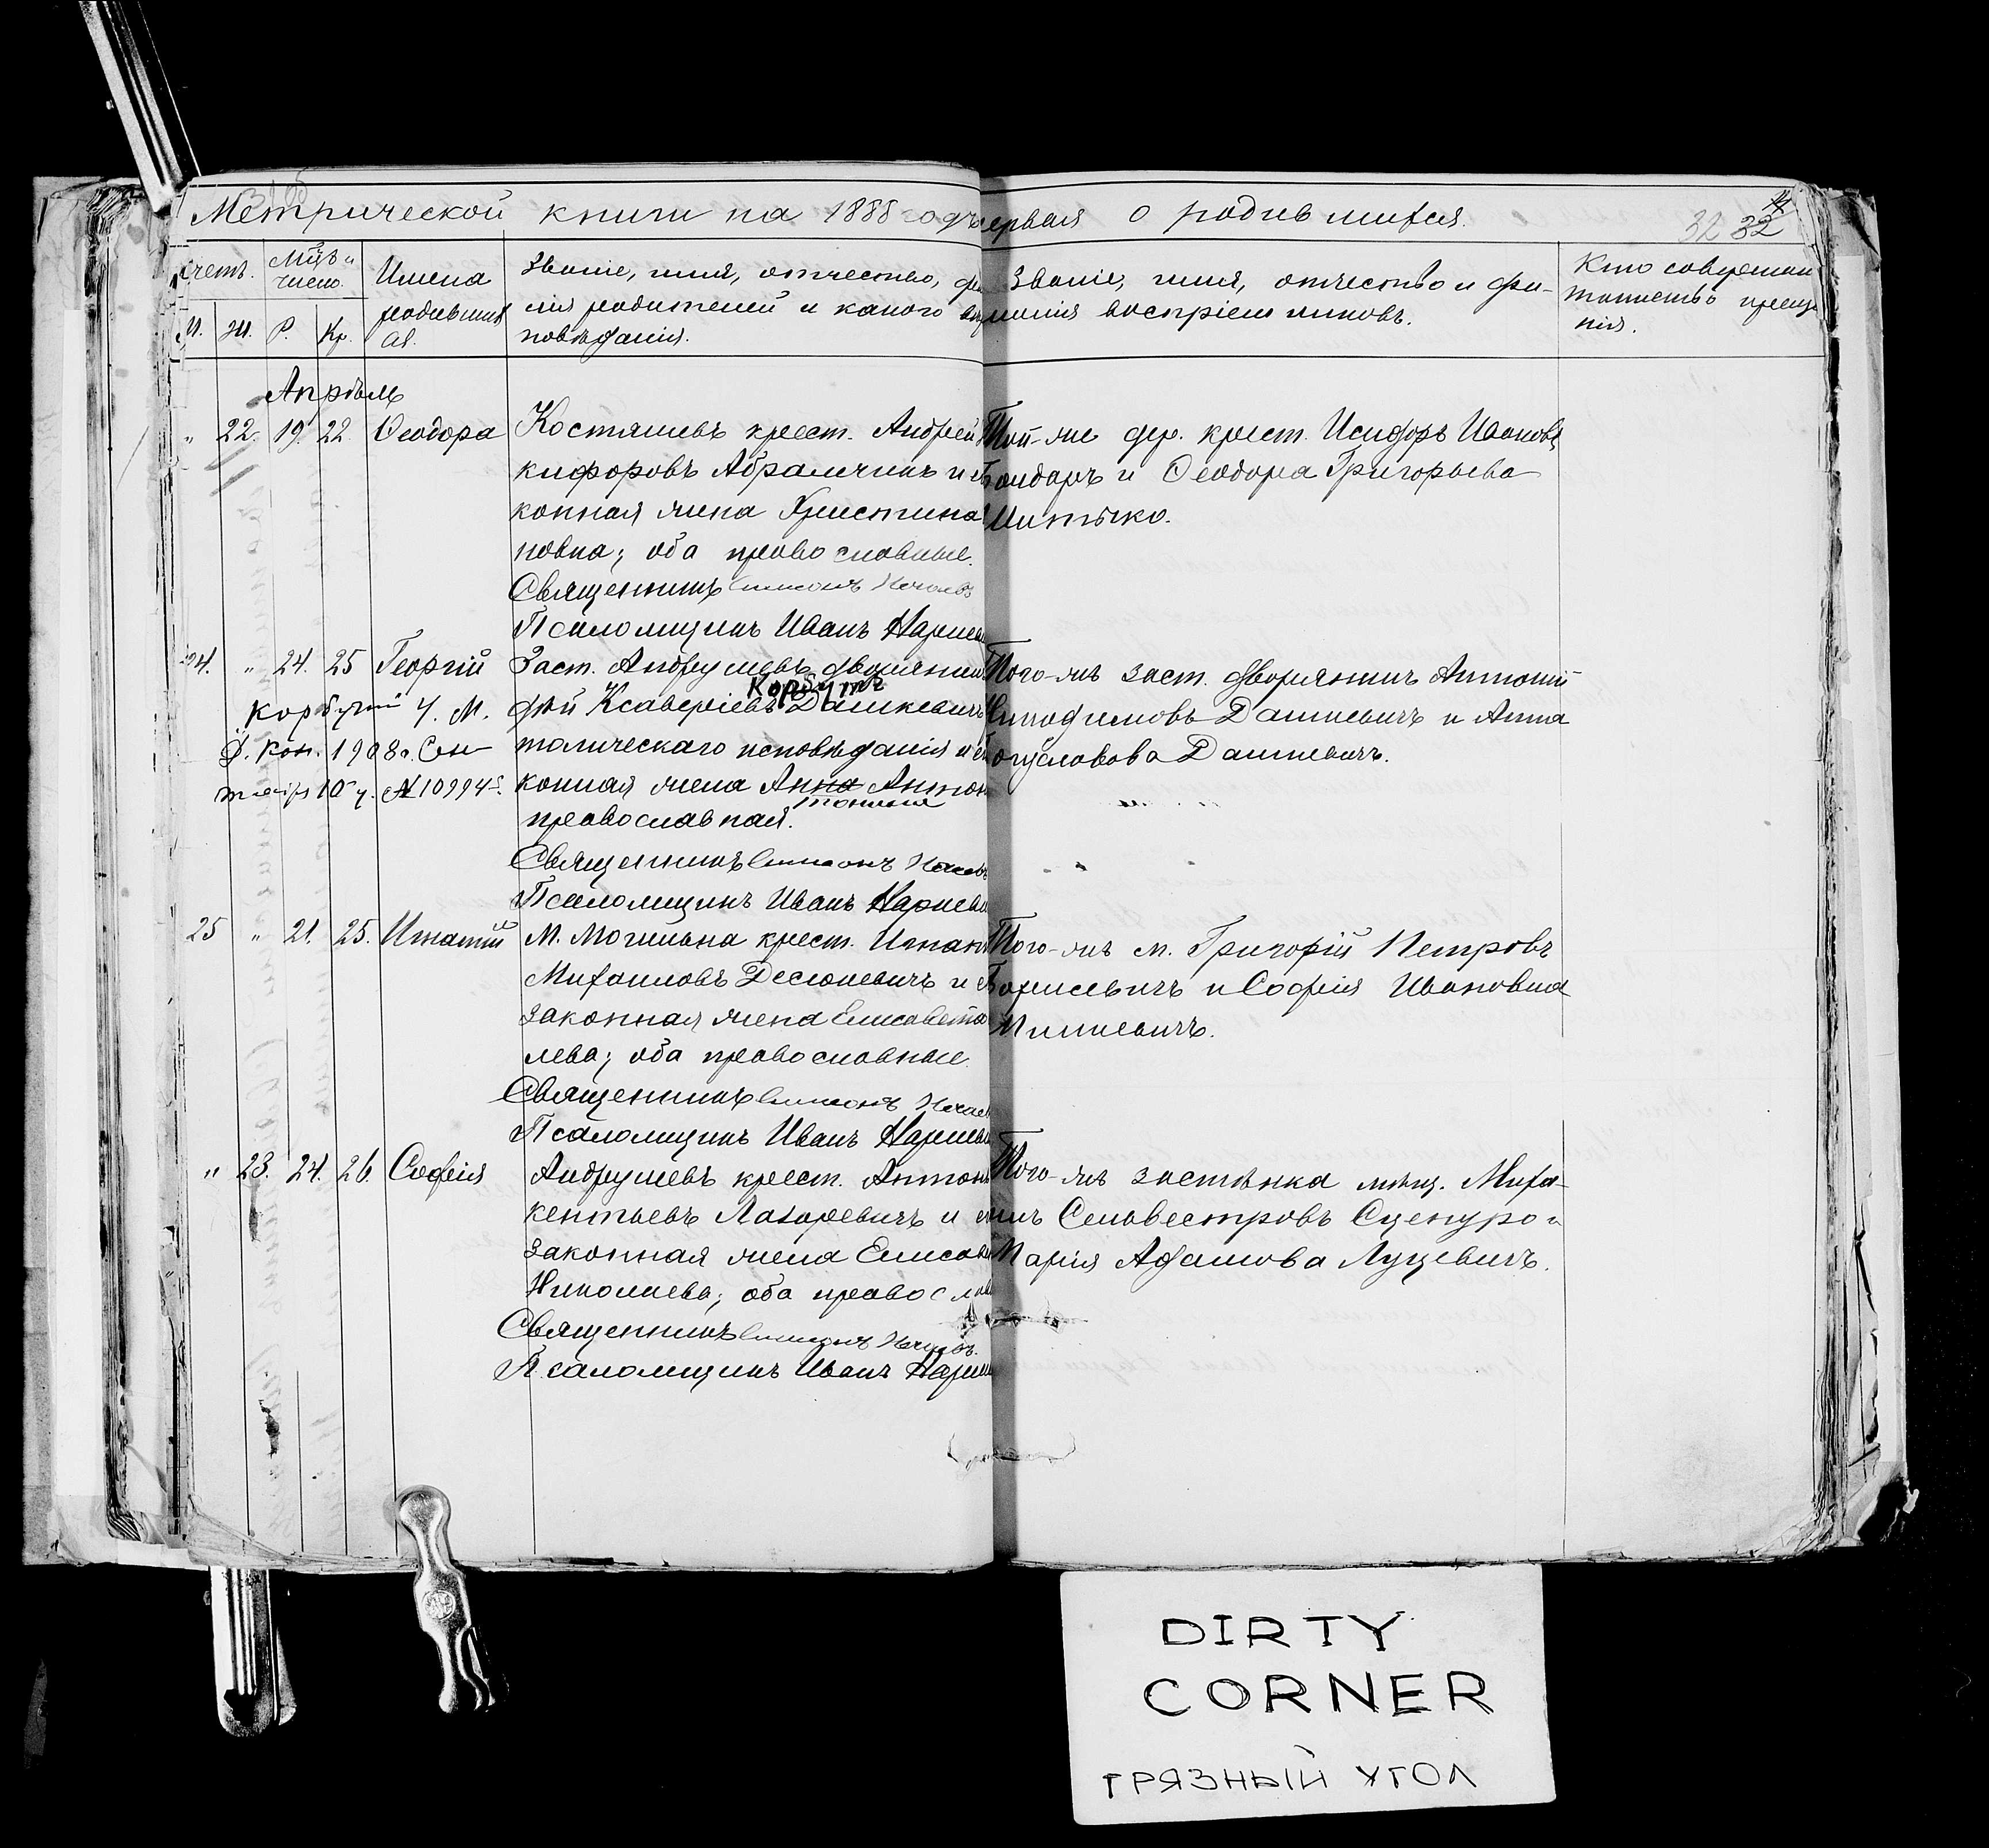 Метрической книги на 1888 годъ
ервая о родившихся.
32 32
счетъ.
Мцъ и число.
Имена родившихся.
Званіе, имя, отчество, фа
лія родителей и какого вѣ
повѣданія.
М. Ж. Р. Кр.
Званіе, имя, отчество и фа-
милія воспріемниковъ.
Кто совершал
таинство креще
нія.
Апрѣль
" 22. 19. 22. Ѳеодора
Костяшевъ крест. Андрей
кифоровъ Абрамчикъ и
конная жена Христина
новна; оба православные.
Священникъ Симеонъ
Псаломщикъ Иванъ
Той-же дер. крест. Исидоръ Ивановъ
Бондаръ и Ѳеодора Григорьева
Шитько.
24. " 24. 25 Георгій
Корбутъ У. М.
Д. Кон. 1908 г. Сен
тября 10 ч. № 10994
Заст. Андрушевъ дворянин
Корбутъ
дѣй Ксаверіевъ Дашкевичъ
толическаго исповѣданія и
конная жена Анна Антон
тонина
православная.
Священникъ Симеонъ
Псаломщикъ Иванъ
Того-жъ заст. дворянинъ Антоній
Дашкевичъ и Анна
Дашкевичъ.
25 " 21. 25. Игнатій
М. Могильна крест. Игнат
Михаиловъ Десюкевичъ и
законная жена Елисавета
лева; оба православные.
Священникъ Симеонъ
Псаломщикъ Иванъ
Того-жъ м. Григорій Петровъ
Борисевичъ и Софія Ивановна
Мицкевичъ.
" 23. 24. 26. Софія
Андрушевъ крест. Антон
кентьевъ Лазаревичъ и
законная жена Елисав
Николаева; оба правосл
Священникъ Симеонъ
Псаломщикъ Иванъ
Того-жъ застѣнка мѣщ. Миха-
илъ Сельвестровъ Сценуро и
Марія Адамова Луцевичъ.
DIRTY
CORNER
ГРЯЗНЫЙ УГОЛ